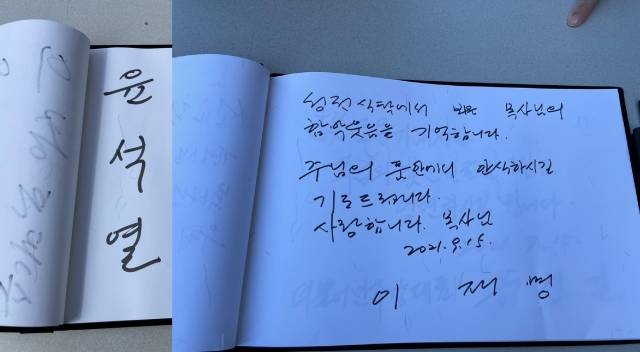 윤석열
성전 식탁에서 목사님의
함박웃음을 기억합니다.
주님의 품안에서 안식하시길
기도드립니다.
사랑합니다. 목사님
2021. 9. 15.
이 재 명